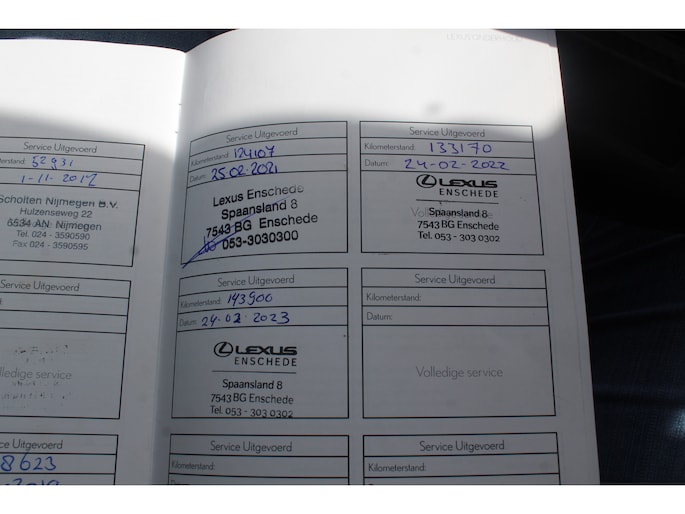 LEXUS ONDERHOUD
Service Uitgevoerd
terstand: 52931
1-11-2017
Scholten Nijmegen B.V.
Hulzenseweg 22
6534 AN Nijmegen
Tel. 024 - 3590590
Fax 024 - 3590595
Service Uitgevoerd
olledige service
Service Uitgevoerd
8623
Service Uitgevoerd
Kilometerstand: 124107
Datum: 25.02.2021
Lexus Enschede
Spaansland 8
7543 BG Enschede
053-3030300
Service Uitgevoerd
Kilometerstand: 133170
Datum: 24-02-2022
LEXUS
Volledige
Spaansland 8
7543 BG Enschede
Tel. 053 - 303 0302
Service Uitgevoerd
Kilometerstand: 143900
Datum: 24.02.2023
LEXUS
ENSCHEDE
Spaansland 8
7543 BG Enschede
Tel. 053 - 303 0302
Service Uitgevoerd
Kilometerstand:
Datum:
Volledige service
Service Uitgevoerd
Kilometerstand:
Service Uitgevoerd
Kilometerstand: